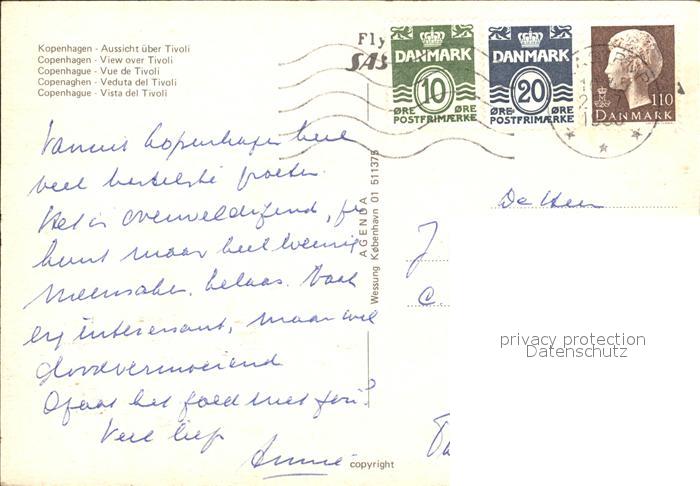 Kopenhagen - Aussicht über Tivoli
Copenhagen - View over Tivoli
Copenhague - Vue de Tivoli
Copenaghen - Veduta del Tivoli
Copenhague - Vista del Tivoli
Fly
SAS
DANMARK
10
ØRE ØRE
POSTFRIMÆRKE
DANMARK
20
ØRE ØRE
POSTFRIMÆRKE
110
DANMARK
Vanuit Copenhagen heel
veel hartelijke groeten.
Het is overweldigend, je
kunt maar heel weinig
meemaken, helaas. Vaak
erg interessant, maar wel
doodvermoeiend
Gaat het goed met jou?
Veel liefs
Annie
AGENDA
Wessung København 01 511375
De Heer
J
C.
privacy protection
Datenschutz
copyright